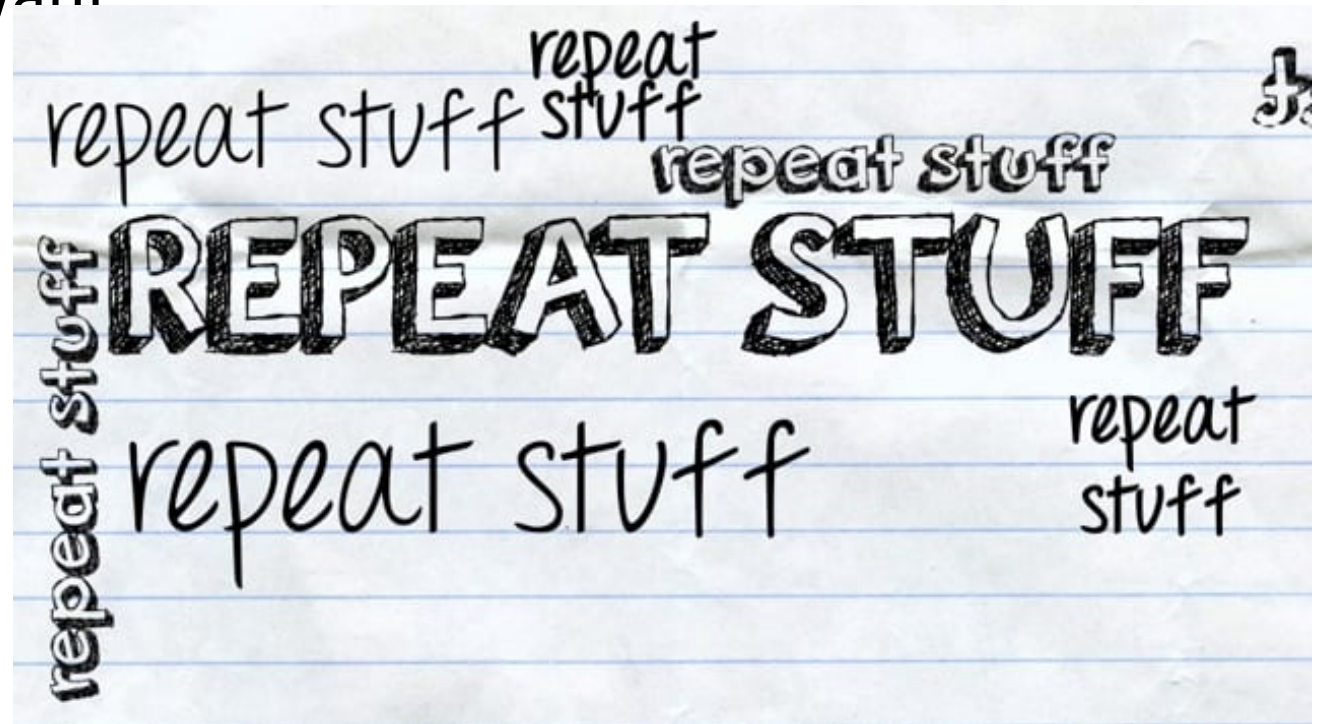 repeat
stuff
repeat stuff
repeat stuff
REPEAT STUFF
repeat stuff
repeat stuff
repeat
stuff